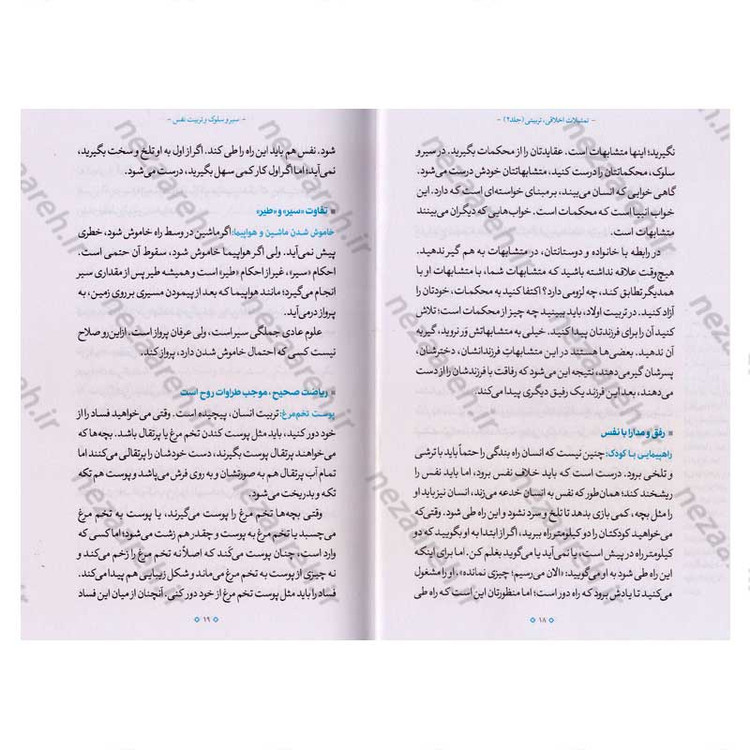 - تمثیلات اخلاقی، تربیتی (جلد۲) -
نگیرید؛ اینها متشابهات است. عقایدتان را از محکمات بگیرید. در سیر و
سلوک، محکماتتان را درست کنید، متشابهاتتان خودش درست می‌شود.
گاهی خوابی که انسان می‌بیند، بر مبنای خواسته‌ای است که دارد. این
خواب انبیا است که از محکمات است. خواب‌هایی که دیگران می‌بینند
متشابهات است.
در رابطه با خانواده و دوستانتان، در متشابهات به هم گیر ندهید.
هیچ‌وقت علاقه نداشته باشید که متشابهات شما، با متشابهات او با
همدیگر تطابق کند، چه لزومی دارد؟ اکتفا کنید به محکمات، خودتان را
آزاد کنید. در تربیت اولاد، باید ببینید چه چیز از محکمات است؛ تلاش
کنید آن را برای فرزندتان پیدا کنید. خیلی به متشابهاتش وَر نروید، گیر به
آن ندهید. بعضی‌ها هستند در این متشابهاتِ فرزندانشان، دخترشان،
پسرشان گیر می‌دهند، نتیجه این می‌شود که رفاقت با فرزندشان را از دست
می‌دهند، بعد این فرزند یک رفیق دیگری پیدا می‌کند.
رفق و مدارا با نفس
راهپیمایی با کودک: چنین نیست که انسان راه بندگی را حتماً باید با ترشی
و تلخی برود. درست است که باید خلاف نفس برود، اما باید نفس را
ریشخند کند؛ همان‌طور که نفس به انسان خدعه می‌زند، انسان نیز باید او
را مثل بچه، کمی بازی بدهد تا تلخ و سرد نشود و این راه طی شود. وقتی‌که
می‌خواهید کودکتان را دو کیلومتر راه ببرید، اگر از ابتدا به او بگویید که دو
کیلومتر راه در پیش است، یا نمی‌آید یا می‌گوید بغلم کن. اما برای اینکه
این راه طی شود به او می‌گویید: «الان می‌رسیم؛ چیزی نمانده»، او را مشغول
می‌کنید تا یادش برود که راه دور است؛ اما منظورتان این است که راه طی
۱۸
- سیر و سلوک و تربیت نفس -
شود. نفس هم باید این راه را طی کند. اگر از اول به او تلخ و سخت بگیرید،
نمی‌آید؛ اما اگر اول کار کمی سهل بگیرید، درست می‌شود.
تفاوت «سیر» و «طیر»
خاموش شدن ماشین و هواپیما: اگر ماشین در وسط راه خاموش شود، خطری
پیش نمی‌آید. ولی اگر هواپیما خاموش شود، سقوط آن حتمی است.
احکام «سیر»، غیر از احکام «طیر» است و همیشه طیر پس از مقداری سیر
انجام می‌گیرد؛ مانند هواپیما که بعد از پیمودن مسیری بر روی زمین، به
پرواز درمی‌آید.
علوم عادی جملگی سیر است، ولی عرفان پرواز است. ازاین‌رو صلاح
نیست کسی که احتمال خاموش شدن دارد، پرواز کند.
ریاضت صحیح، موجب طراوات روح است
پوست تخم‌مرغ: تربیت انسان، پیچیده است. وقتی می‌خواهید فساد را از
خود دور کنید، باید مثل پوست کندن تخم مرغ یا پرتقال باشد. بچه‌ها که
می‌خواهند پرتقال پوست بگیرند، دست خودشان را پرتقالی می‌کنند و
تمام آب پرتقال هم به صورتشان و به روی فرش می‌پاشد و پوست هم تکه
تکه و بدریخت می‌شود.
وقتی بچه‌ها تخم مرغ را پوست می‌گیرند، یا پوست به تخم مرغ
می‌چسبد یا تخم مرغ به پوست و چقدر هم زشت می‌شود؛ اما کسی که
وارد است، چنان پوست می‌کَند که اصلاً نه تخم مرغ را زخم می‌کند و
نه چیزی از پوست به تخم مرغ می‌ماند و شکل زیبایی هم پیدا می‌کند.
فساد را باید مثل پوست تخم مرغ از خود دور کنی، آنچنان از میان این فساد
۱۹
nezaareh.ir